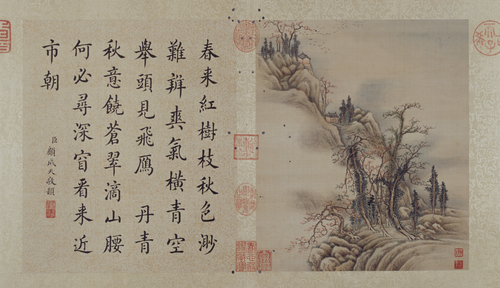 春来紅樹枝秋色渺
難辨爽氣橫青空
舉頭見飛鴈 丹青
秋意饒蒼翠滴山腰
何必尋深窅看来近
市朝
臣顧成天敬